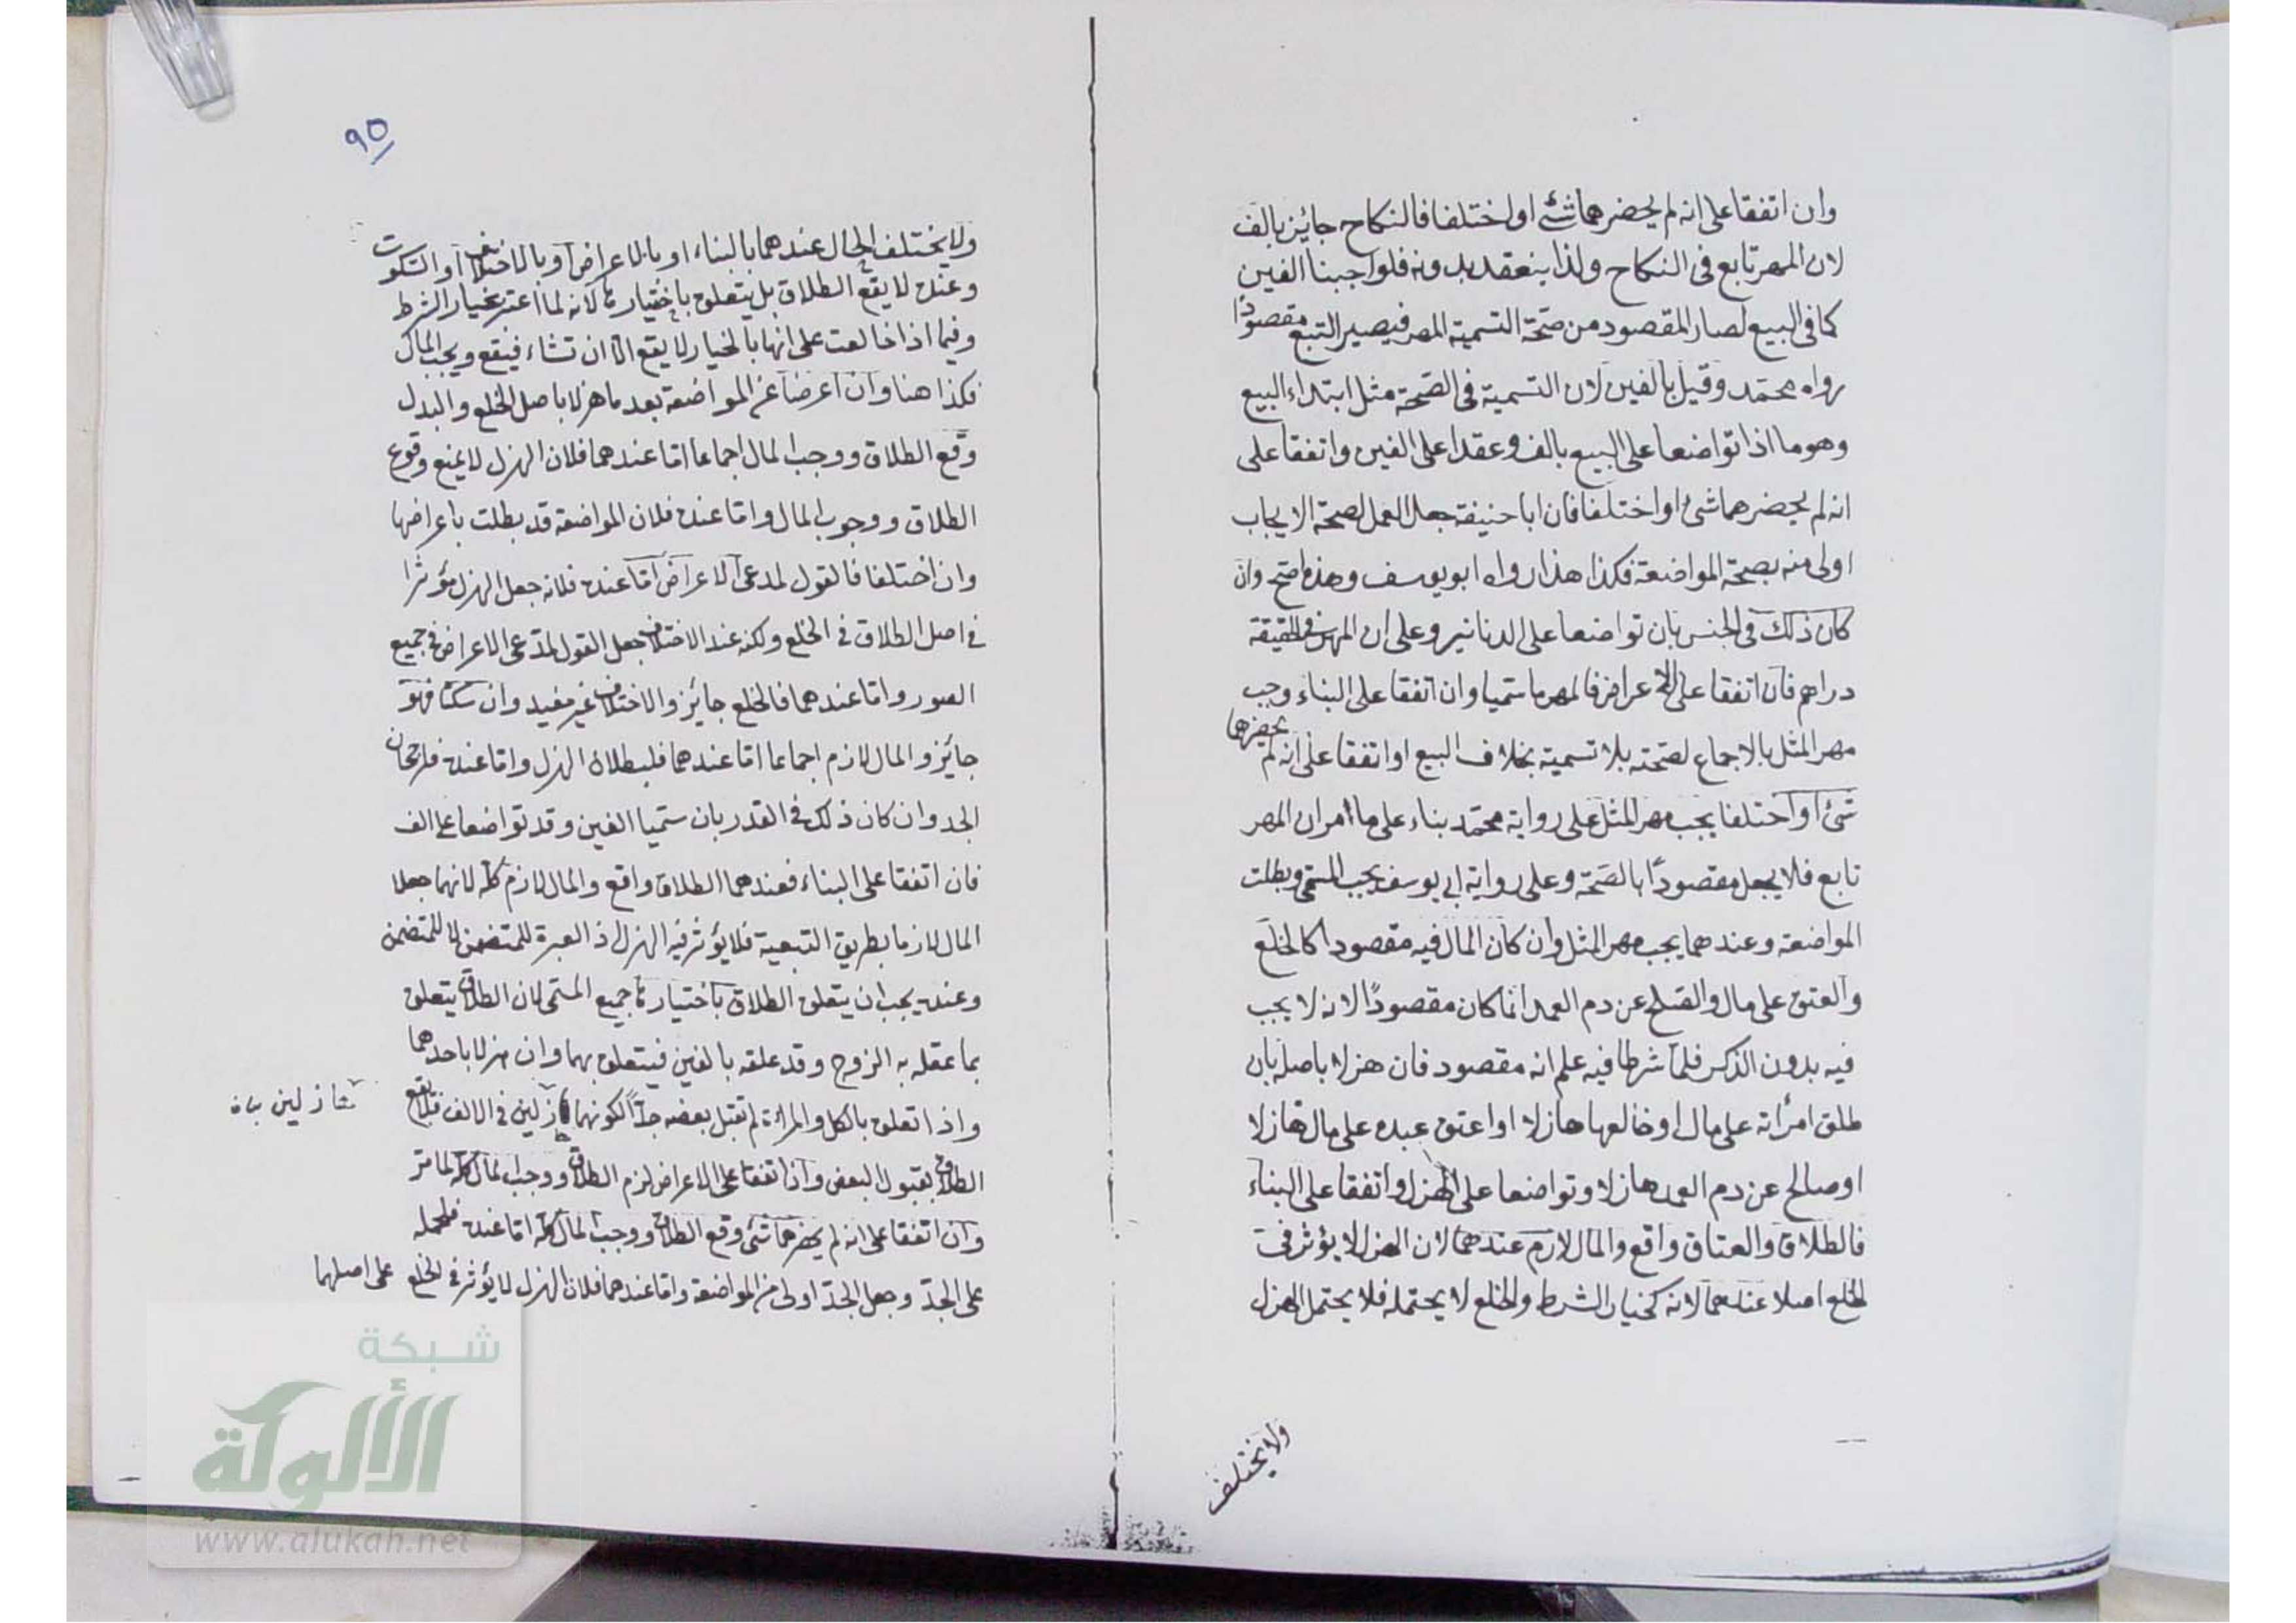 وان اتفقا على انه لم يحضرهما شئ او اختلفا فالنكاح جائز بالف
لان المهر تابع فى النكاح ولذا ينعقد بدونه فلو اوجبنا الفين
كما فى البيع لصار المقصود من صحّة التسمية المهر فيصير التبع مقصودًا
رواه محمّد وقيل بالفين لان التسمية فى الصّحة مثل ابتداء البيع
وهو ما اذا تواضعا على البيع بالف وعقدا على الفين واتفقا على
انه لم يحضرهما شئ او اختلفا فان ابا حنيفة جعل العمل لصحة الايجاب
اولى منه بصحة المواضعة فكذا هذا رواه ابو يوسف وهذه اصّح وان
كان ذلك فى الجنس بان تواضعا على الدنانير وعلى ان المهر فى الحقيقة
دراهم فان اتفقا على الاعراض فالمهر ما سمّيا وان اتفقا على البناء وجب
مهر المثل بالاجماع لصّحته بلا تسمية بخلاف البيع او اتفقا على انه لم يحضرهما
شئ او اختلفا يجب مهر المثل على رواية محمّد بناء على ما امر ان المهر
تابع فلا يجعل مقصودًا بالصّحة وعلى رواية ابى يوسف يجب المسمّى وبطلت
المواضعة وعندهما يجب مهر المثل وان كان المال فيه مقصودا كالخلع
والعتق على مال والصّلح عن دم العمد انما كان مقصودًا لانه لا يجب
فيه بدون الذكر فلمّا شرطا فيه علم انه مقصود فان هزلا باصله بان
طلق امرأته على مال او خالعها هازلا او اعتق عبده على مال هازلا
او صالح عن دم العمد هازلا وتواضعا على الهزل واتفقا على البناء
فالطلاق والعتاق واقع والمال لازم عندهما لان الهزل لا يؤثر فى
الخلع اصلا عندهما لانه كخيار الشرط والخلع لا يحتمله فلا يحتمل الهزل
ولا يختلف
٩٥
ولا يختلف الحال عندهما بالبناء او بالاعراض او بالاختلاف او السّكوت
وعنده لا يقع الطلاق بل يتعلق باختيارها لانه لما اعتبر بخيار الشرط
وفيما اذا خالعت على انها بالخيار لا يقع الا ان تشاء فيقع ويجب المال
فكذا هنا وان اعرضا عن المواضعة بعد ما هزلا باصل الخلع والبدل
وقع الطلاق ووجب المال اجماعا امّا عندهما فلان الهزل لا يمنع وقوع
الطلاق ووجوب المال وامّا عنده فلان المواضعة قد بطلت باعراضها
وان اختلفا فالقول لمدعى الاعراض امّا عنده فلانه جعل الهزل مؤثرا
فى اصل الطلاق فى الخلع ولكنه عند الاختلاف جعل القول لمدّعى الاعراض فى جميع
الصور وامّا عندهما فالخلع جائز والاختلاف غير مفيد وان سكتا فهو
جائز والمال لازم اجماعا امّا عندهما فلبطلان الهزل وامّا عنده فلرجحان
الجد وان كان ذلك فى القدر بان سمّيا الفين وقد تواضعا على الف
فان اتفقا على البناء فعندهما الطلاق واقع والمال لازم كلّه لانهما جعلا
المال لازما بطريق التبعية فلا يؤثر فيه الهزل اذ العبرة للمتضمن لا للمتضمن
وعنده يجب ان يتعلق الطلاق باختيارها جميع المسمّى لان الطلاق يتعلق
بما عقله به الزوج وقد علقه بالفين فيتعلق بهما وان هزلا باحدهما
واذا تعلق بالكل والمرأة لم تقبل بعضه جدًّا لكونهما هازلين فى الالف فلا يقع
الطلاق بقبول البعض واذا اتفقا على الاعراض لزم الطلاق ووجب المال كلّه لما مرّ
وان اتفقا على انه لم يحضرهما شئ وقع الطلاق ووجب المال كلّه امّا عنده فلحمله
على الجدّ وجعل الجدّ اولى من المواضعة وامّا عندهما فلان الهزل لا يؤثر فى الخلع على اصلهما
شبكة
الألوكة
www.alukah.net